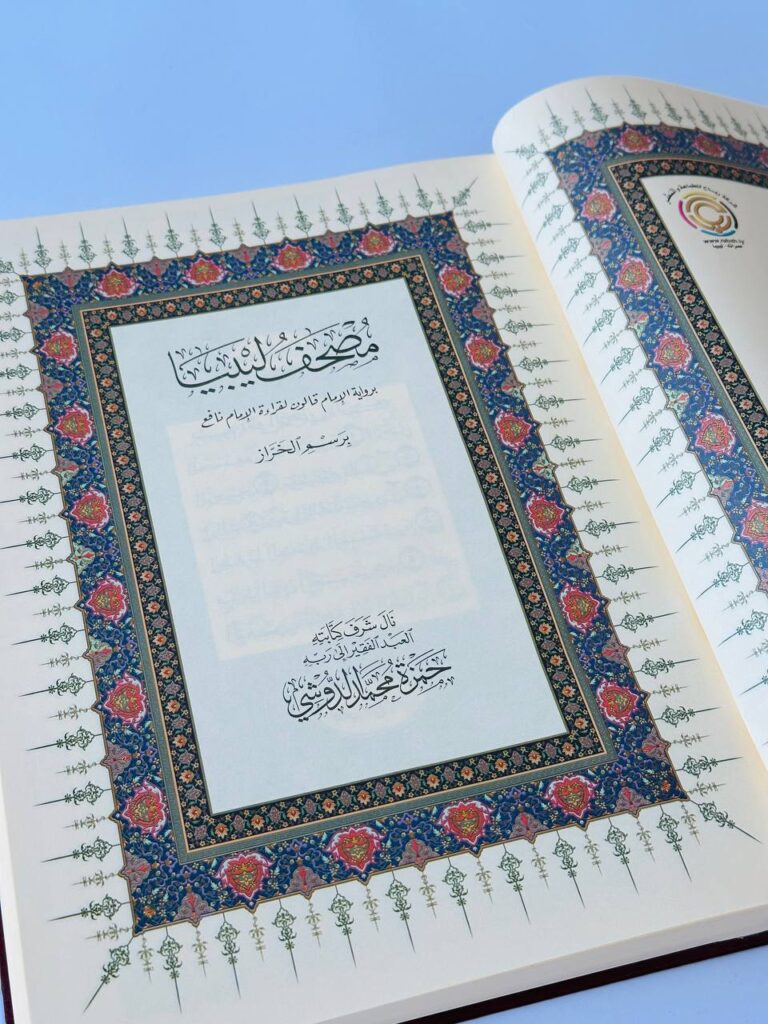 مُصْحَفُ لِيبْيَا
برواية الإمام قالون لقراءة الإمام نافع
بِرَسْمِ الخَرَّاز
نَالَ شَرَفَ كِتَابَتِهِ
العَبْدُ الفَقِيرُ إِلَى رَبِّهِ
حَمْزَة مُحَمَّد الدُّوشِي